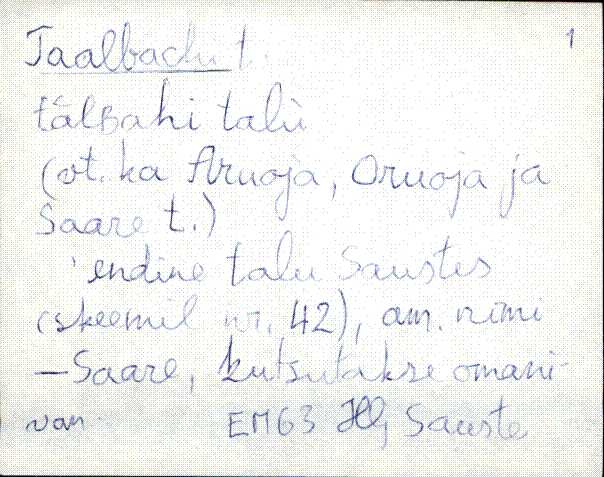 1
Taalbachi t.
tālʙahi talù
(vt. ka Aruoja, Oruoja ja
Saare t.)
endine talu Saustes
(skeemil nr. 42), am. nimi
— Saare, kutsutakse omani-
van EM63 Sauste